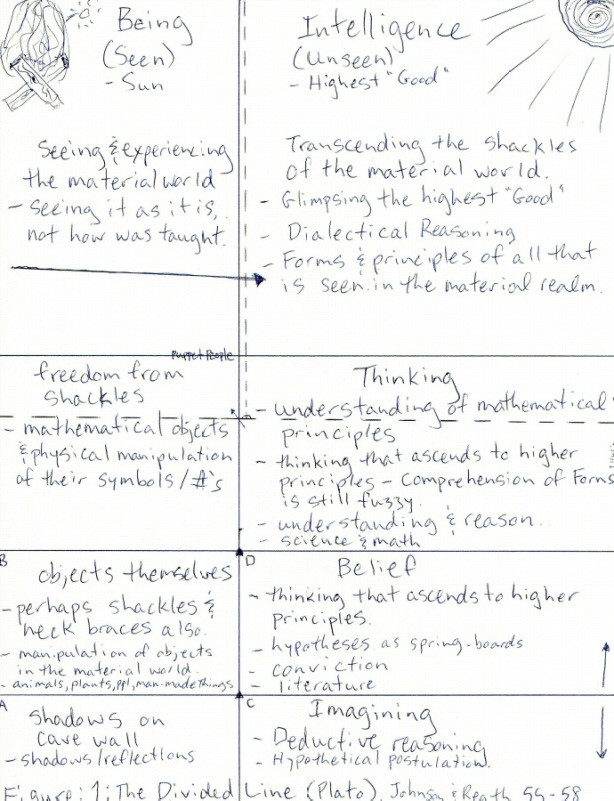 Being
(Seen)
- Sun
Intelligence
(Unseen)
- Highest "Good"
Seeing & experiencing
the material world
- seeing it as it is,
not how was taught.
Transcending the shackles
of the material world.
- Glimpsing the highest "Good"
- Dialectical Reasoning
- Forms & principles of all that
is seen in the material realm.
Puppet People
freedom from
shackles
- mathematical objects
& physical manipulation
of their symbols/#'s
Thinking
- understanding of mathematical
principles
- thinking that ascends to higher
principles - Comprehension of Forms
is still fuzzy.
- understanding & reason.
- science & math
B
objects themselves
- perhaps shackles &
neck braces also.
- manipulation of objects
in the material world.
- animals, plants, ppl, man-made things
D
Belief
- thinking that ascends to higher
principles.
- hypotheses as spring-boards
- conviction
- literature
A
Shadows on
cave wall
- shadows/reflections
C
Imagining
- Deductive reasoning
- Hypothetical postulation.
Figure: 1: The Divided Line (Plato). Johnson & Reath 55-58